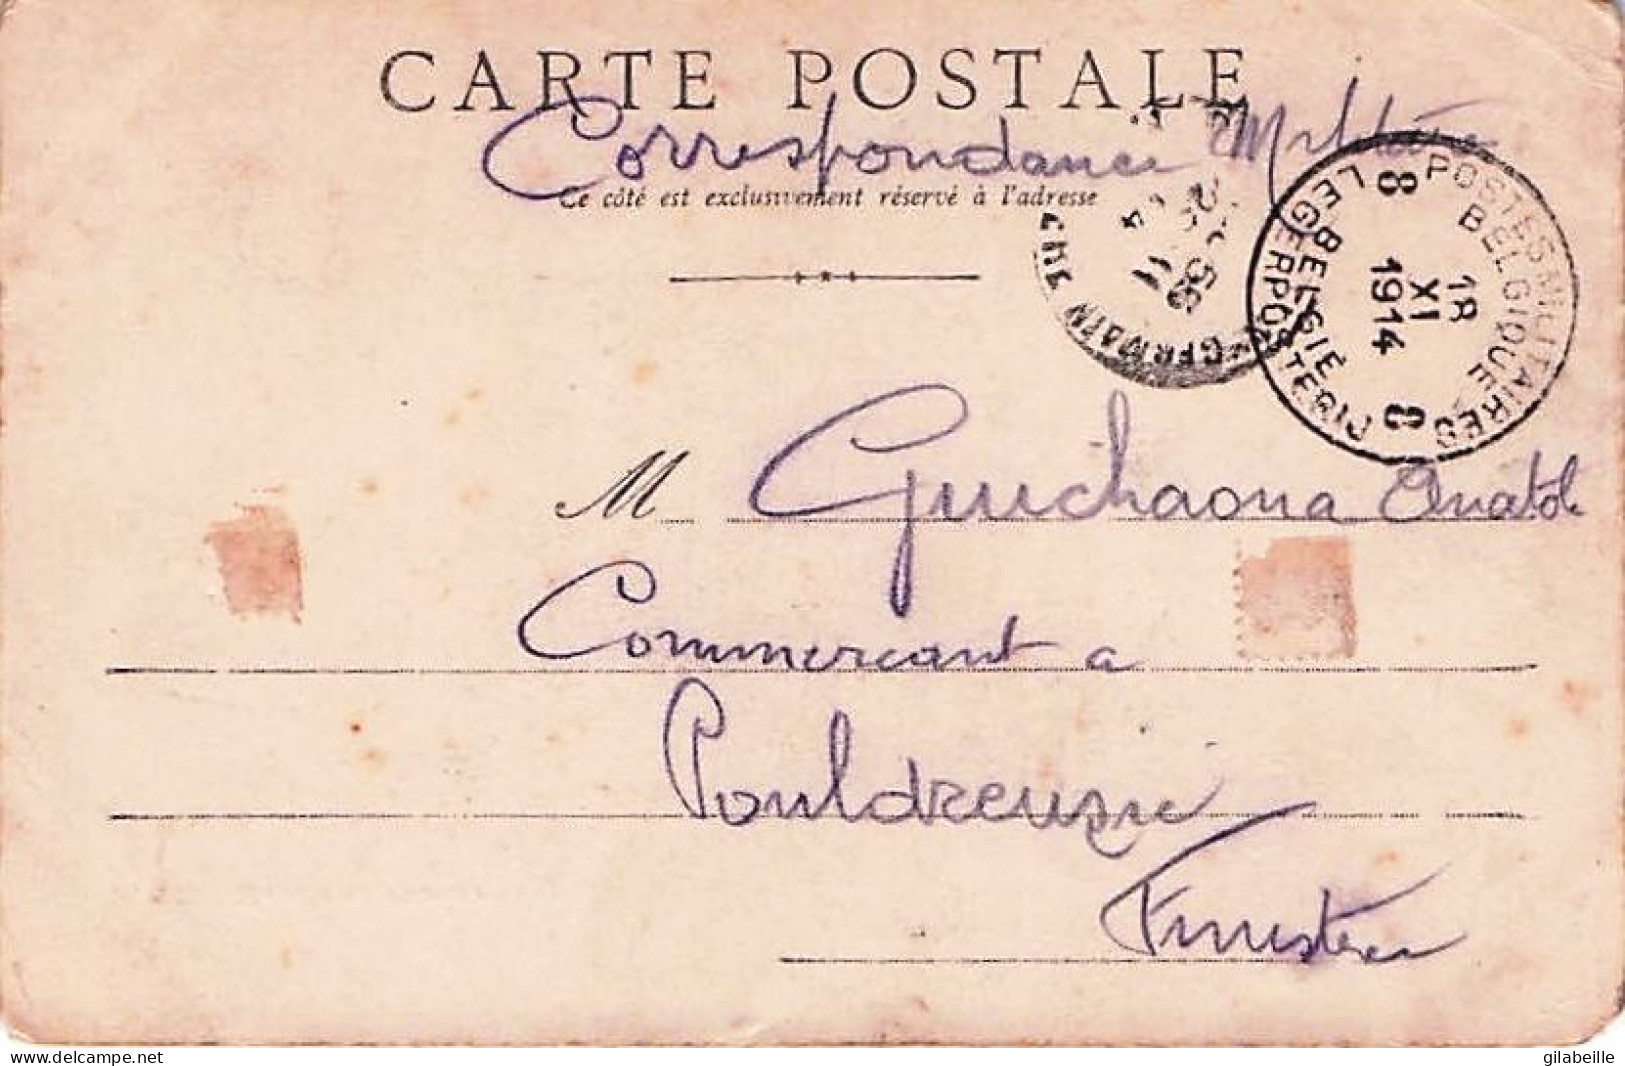 CARTE POSTALE
Correspondance Militaire
Ce côté est exclusivement réservé à l'adresse
POSTES MILITAIRES
BELGIQUE
18
XI
1914
8 8
BELGIE
LEGERPOSTERIJ
M Guichaoua Anatole
Commercant a
Pouldreuzic
Finistère
www.delcampe.net
gilabeille